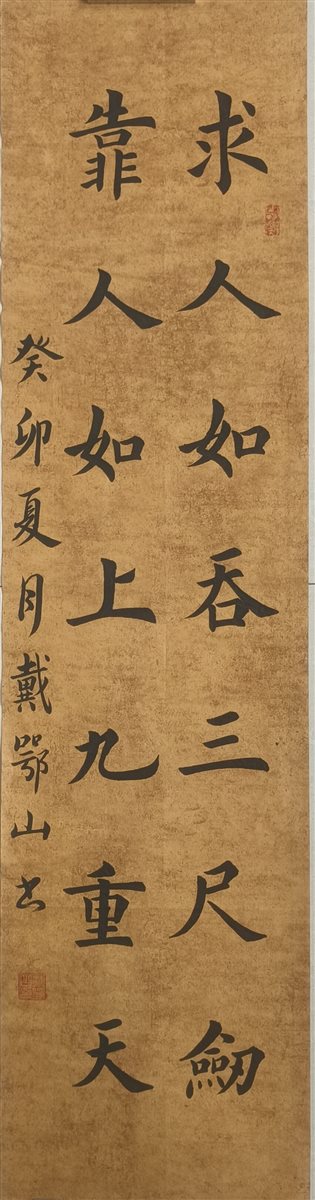 求人如吞三尺劒
靠人如上九重天
癸卯夏月戴鄂山书